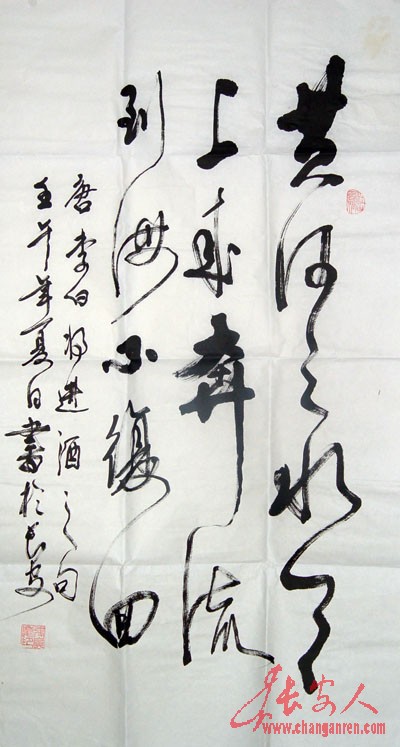 黄河之水天
上来奔流
到海不復回
唐李白将進酒之句
壬午年夏日書於长安
长安人
www.changanren.com